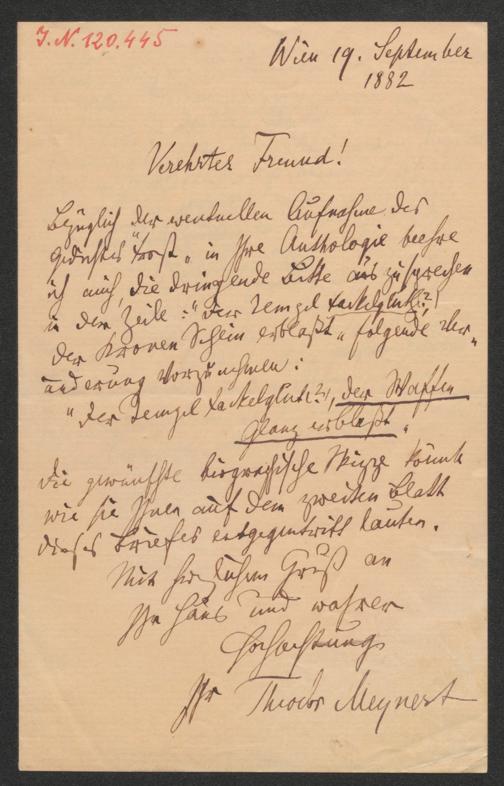 J.N. 120.445
Wien 19. September
1882
Verehrter Freund!
Bezüglich der eventuellen Aufnahme des
Gedichtes „Trost“ in Ihre Anthologie beehre
ich mich, die dringende Bitte auszusprechen
in der Zeile: "Der Tempel Fackelglut(?)
der Kronen Schein erblaßt" folgende Ver-
änderung vorzunehmen:
"Der Tempel Fackelglut(?), der Waffen
Glanz erblaßt".
Die gewünschte biographische Skizze könnte
wie sie Ihnen auf dem zweiten Blatt
dieses Briefes entgegentritt lauten.
Mit herzlichem Gruß an
Ihr Haus und wahrer
Hochachtung
Ihr Theodor Meynert